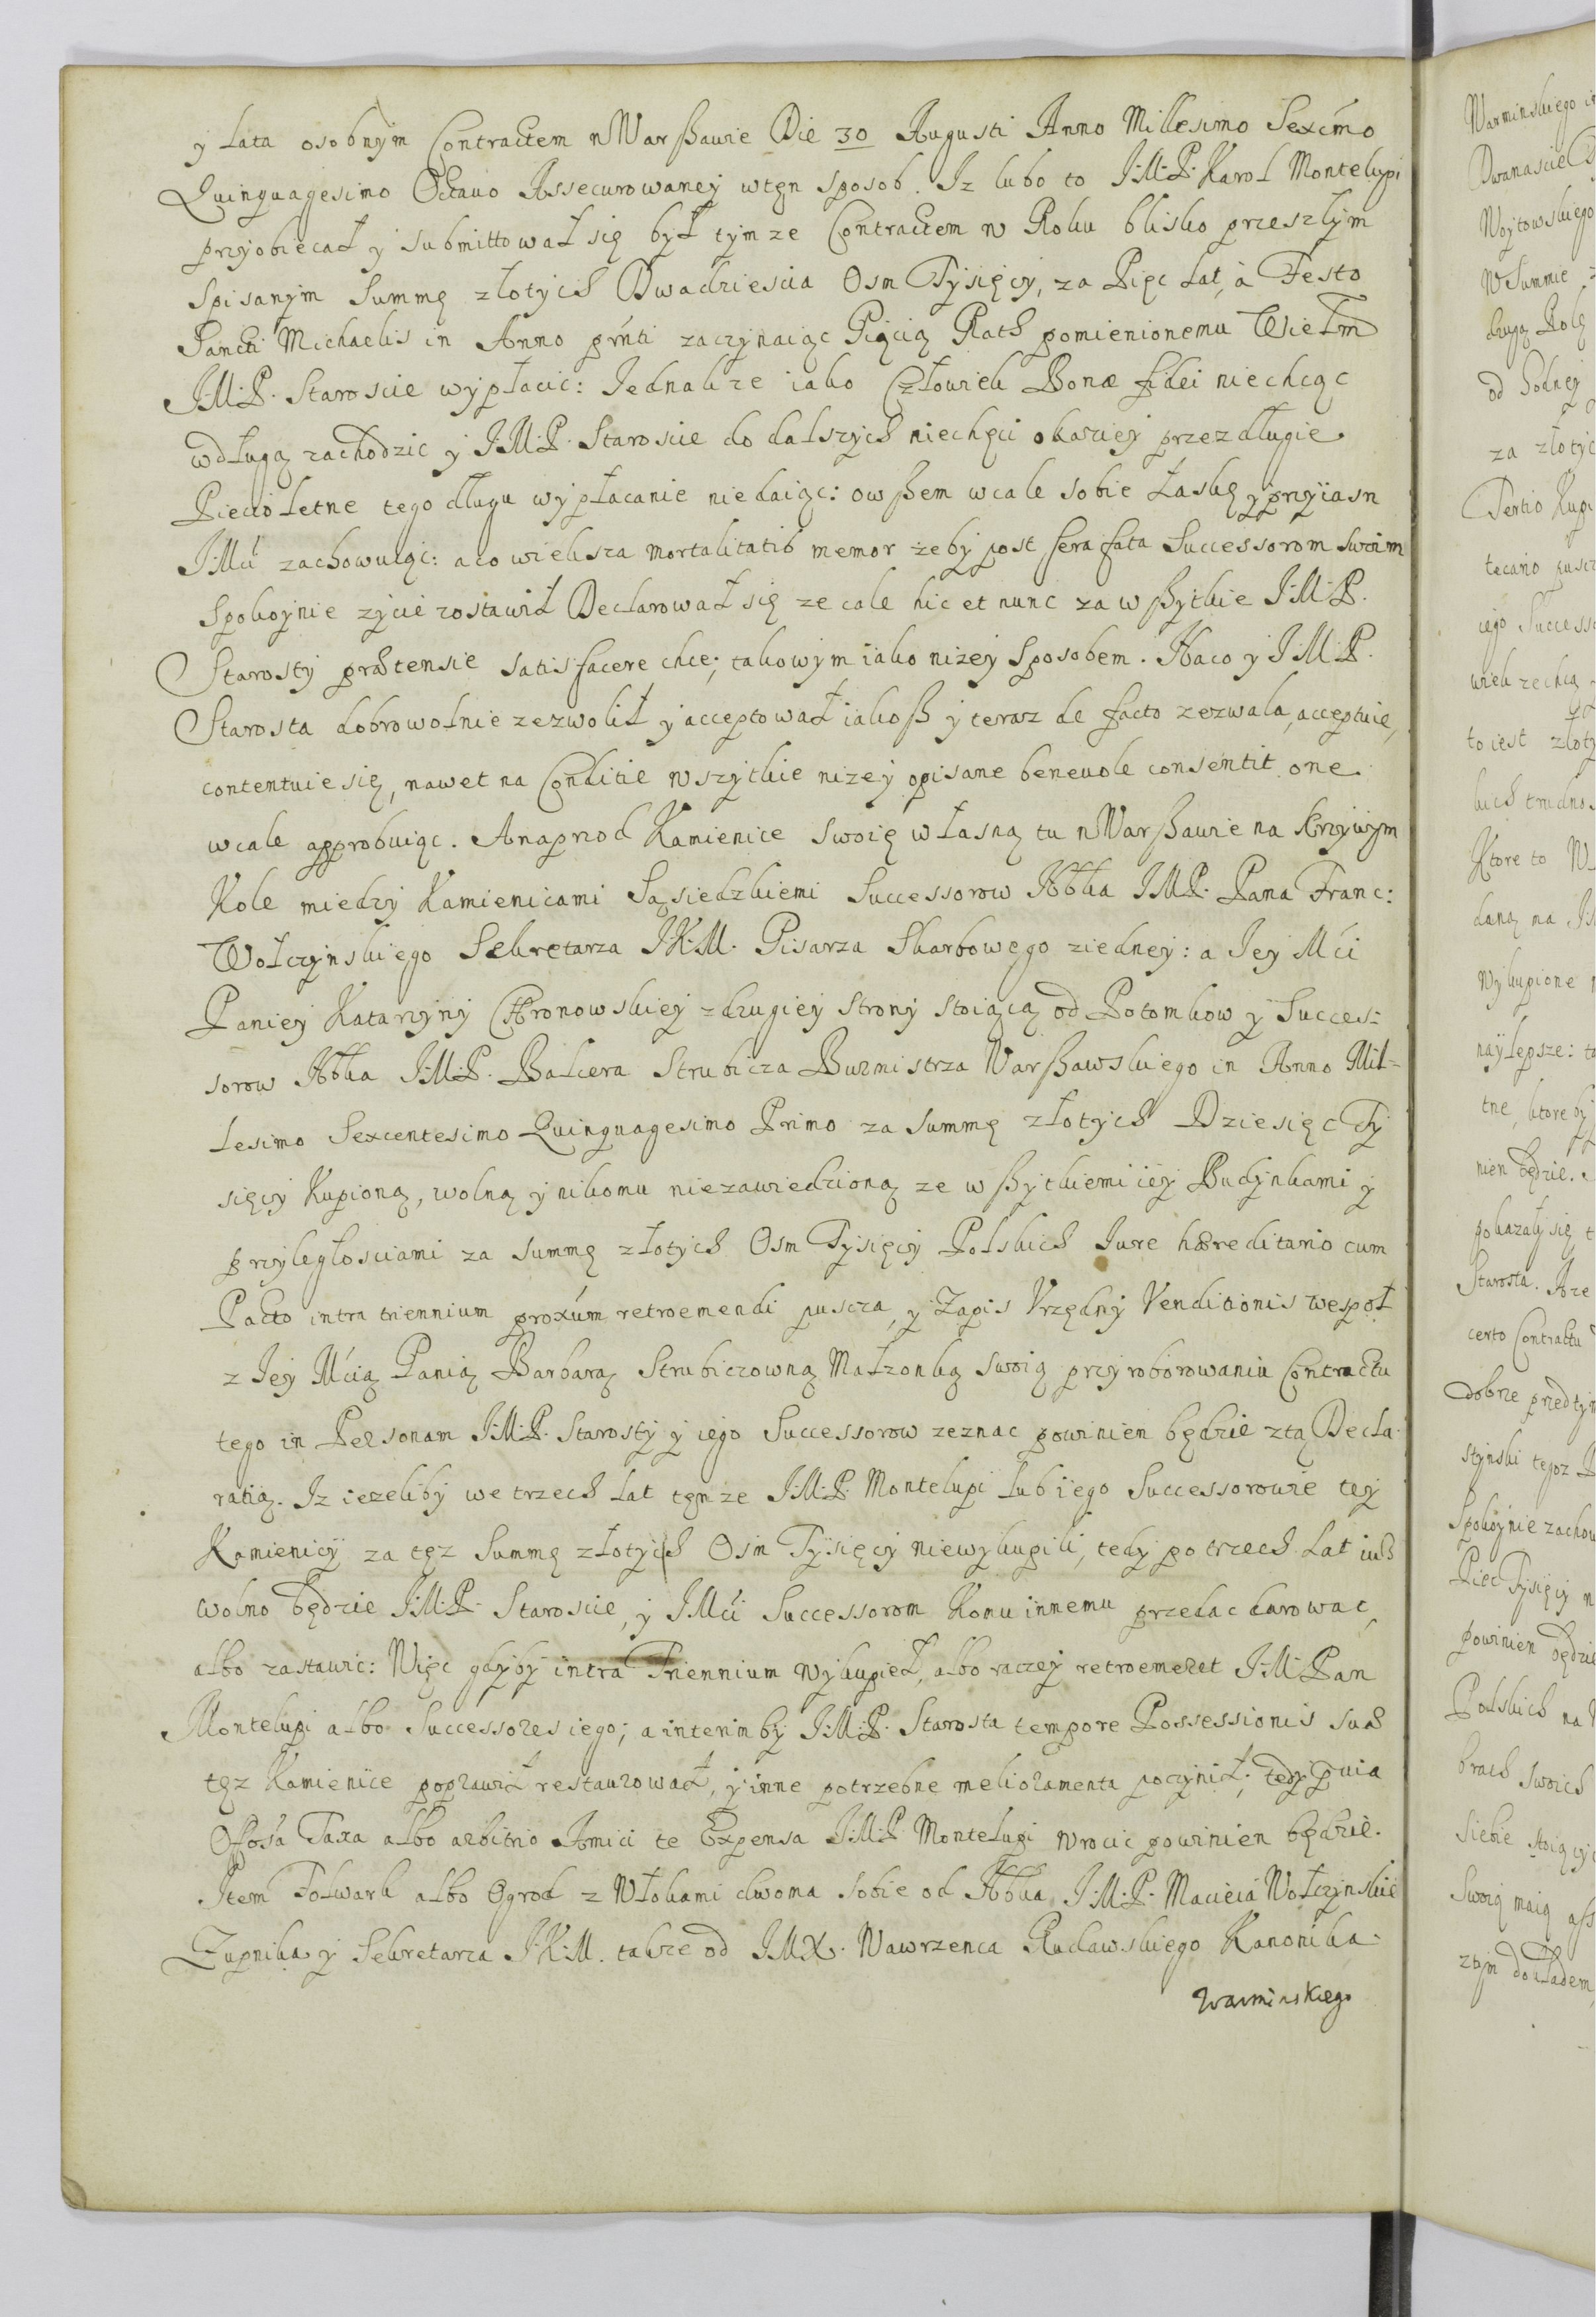 y lata osobnym Contractem w Warßawie Die 30 Augusti Anno Millesimo Sexcmo
Quinquagesimo Octavo Assecurowaney wten sposob. Iz lubo to J:M:P: Karol Montelupi
przyobiecał y submittował się był tymze Contractem w Roku blisko przeszłym
Spisanym Summę złotych Dwadziescia Osm Tysięcy, za Pięc lat, à Festo
Sancti Michaelis in Anno prnti zaczynaiąc Pięcią Rath pomienionemu Wielm
J:M:P. Staroscie wypłacic: Jednakze iako Człowiek Bonæ fidei niechcąc
wdługą zachodzic y J:M:P. Staroscie do dalszych niechęci okaziey przez długie
Piecioletne tego długu wypłacanie niedaiąc: owßem wcale sobie łaskę y przyiasn
JMci zachowuiąc: a co wieksza mortalitatis memor zeby post sera fata Successorom swoim
Spokoynie zycie zostawił Declarował się ze cale hic et nunc za wßytkie J:M:P.
Starosty prætensie satisfacere chce; takowym iako nizey Sposobem. Na co y J:M:P.
Starosta dobrowolnie zezwolił y acceptował iakoß y teraz de facto zezwala, acceptuie,
contentuie się, nawet na Conditie wszytkie nizey opisane benevole consentit one
wcale approbuiąc. A naprzod Kamienice swoię własną tu w Warßawie na Krzywym
Kole miedzy Kamienicami Sąsiedzkiemi Successorow Nbka JMP. Pana Franc:
Wołczynskiego Sekretarza J:K:M. Pisarza Skarbowego ziedney: a Jey Mci
Paniey Katarzyny Chronowskiey z drugiey strony stoiącą od Potomkow y Succes:
sorow Nbka J:M:P. Balcera Strubicza Burmistrza Warßawskiego in Anno Mil-
lesimo Sexcentesimo Quinquagesimo Primo za summę złotych Dziesięc Ty
sięcy Kupioną, wolną y nikomu niezawiedzioną ze wßytkiemi iey Budynkami y
przyległosciami za summę złotych Osm Tysięcy Polskich Jure hæreditario cum
Pacto intra triennium proxum retroemendi puscza, y Zapis Vrzędny Venditionis wespoł
z Jey Mcią Panią Barbarą Strubiczowną Małzonką swoią przy roborowaniu Contractu
tego in Personam J:M:P. Starosty y iego Successorow zeznac powinien będzie z tą Decla-
ratią. Iz iezeliby we trzech lat tenze J:M:P. Montelupi lub iego Successorowie tey
Kamienicy za tęz Summę złotych Osm Tysięcy niewykupili, tedy po trzech lat iuß
wolno będzie J:M:P. Staroscie, y JMci Successorom Komu innemu przedac darowac,
albo zastawic: Więc gdyby intra Triennium wykupieł, albo raczey retroemeret J:M:Pan
Montelupi albo Successores iego; a interim by J:M:P. Starosta tempore Possessionis suæ
tęz Kamienice poprawił restaurował, y inne potrzebne melioramenta poczynił; tedy
Taxa albo arbitrio Amici te Expensa J:M:P. Montelupi wrocic powinien będzie.
Item Folwark albo Ogrod z Włokami dwoma sobie od Nbka J:M:P. Macieia Wołczynskie
Zupnika y Sekretarza J:K:M. takze od JMX. Wawrzenca Rucławskiego Kanonika
Warminskiego